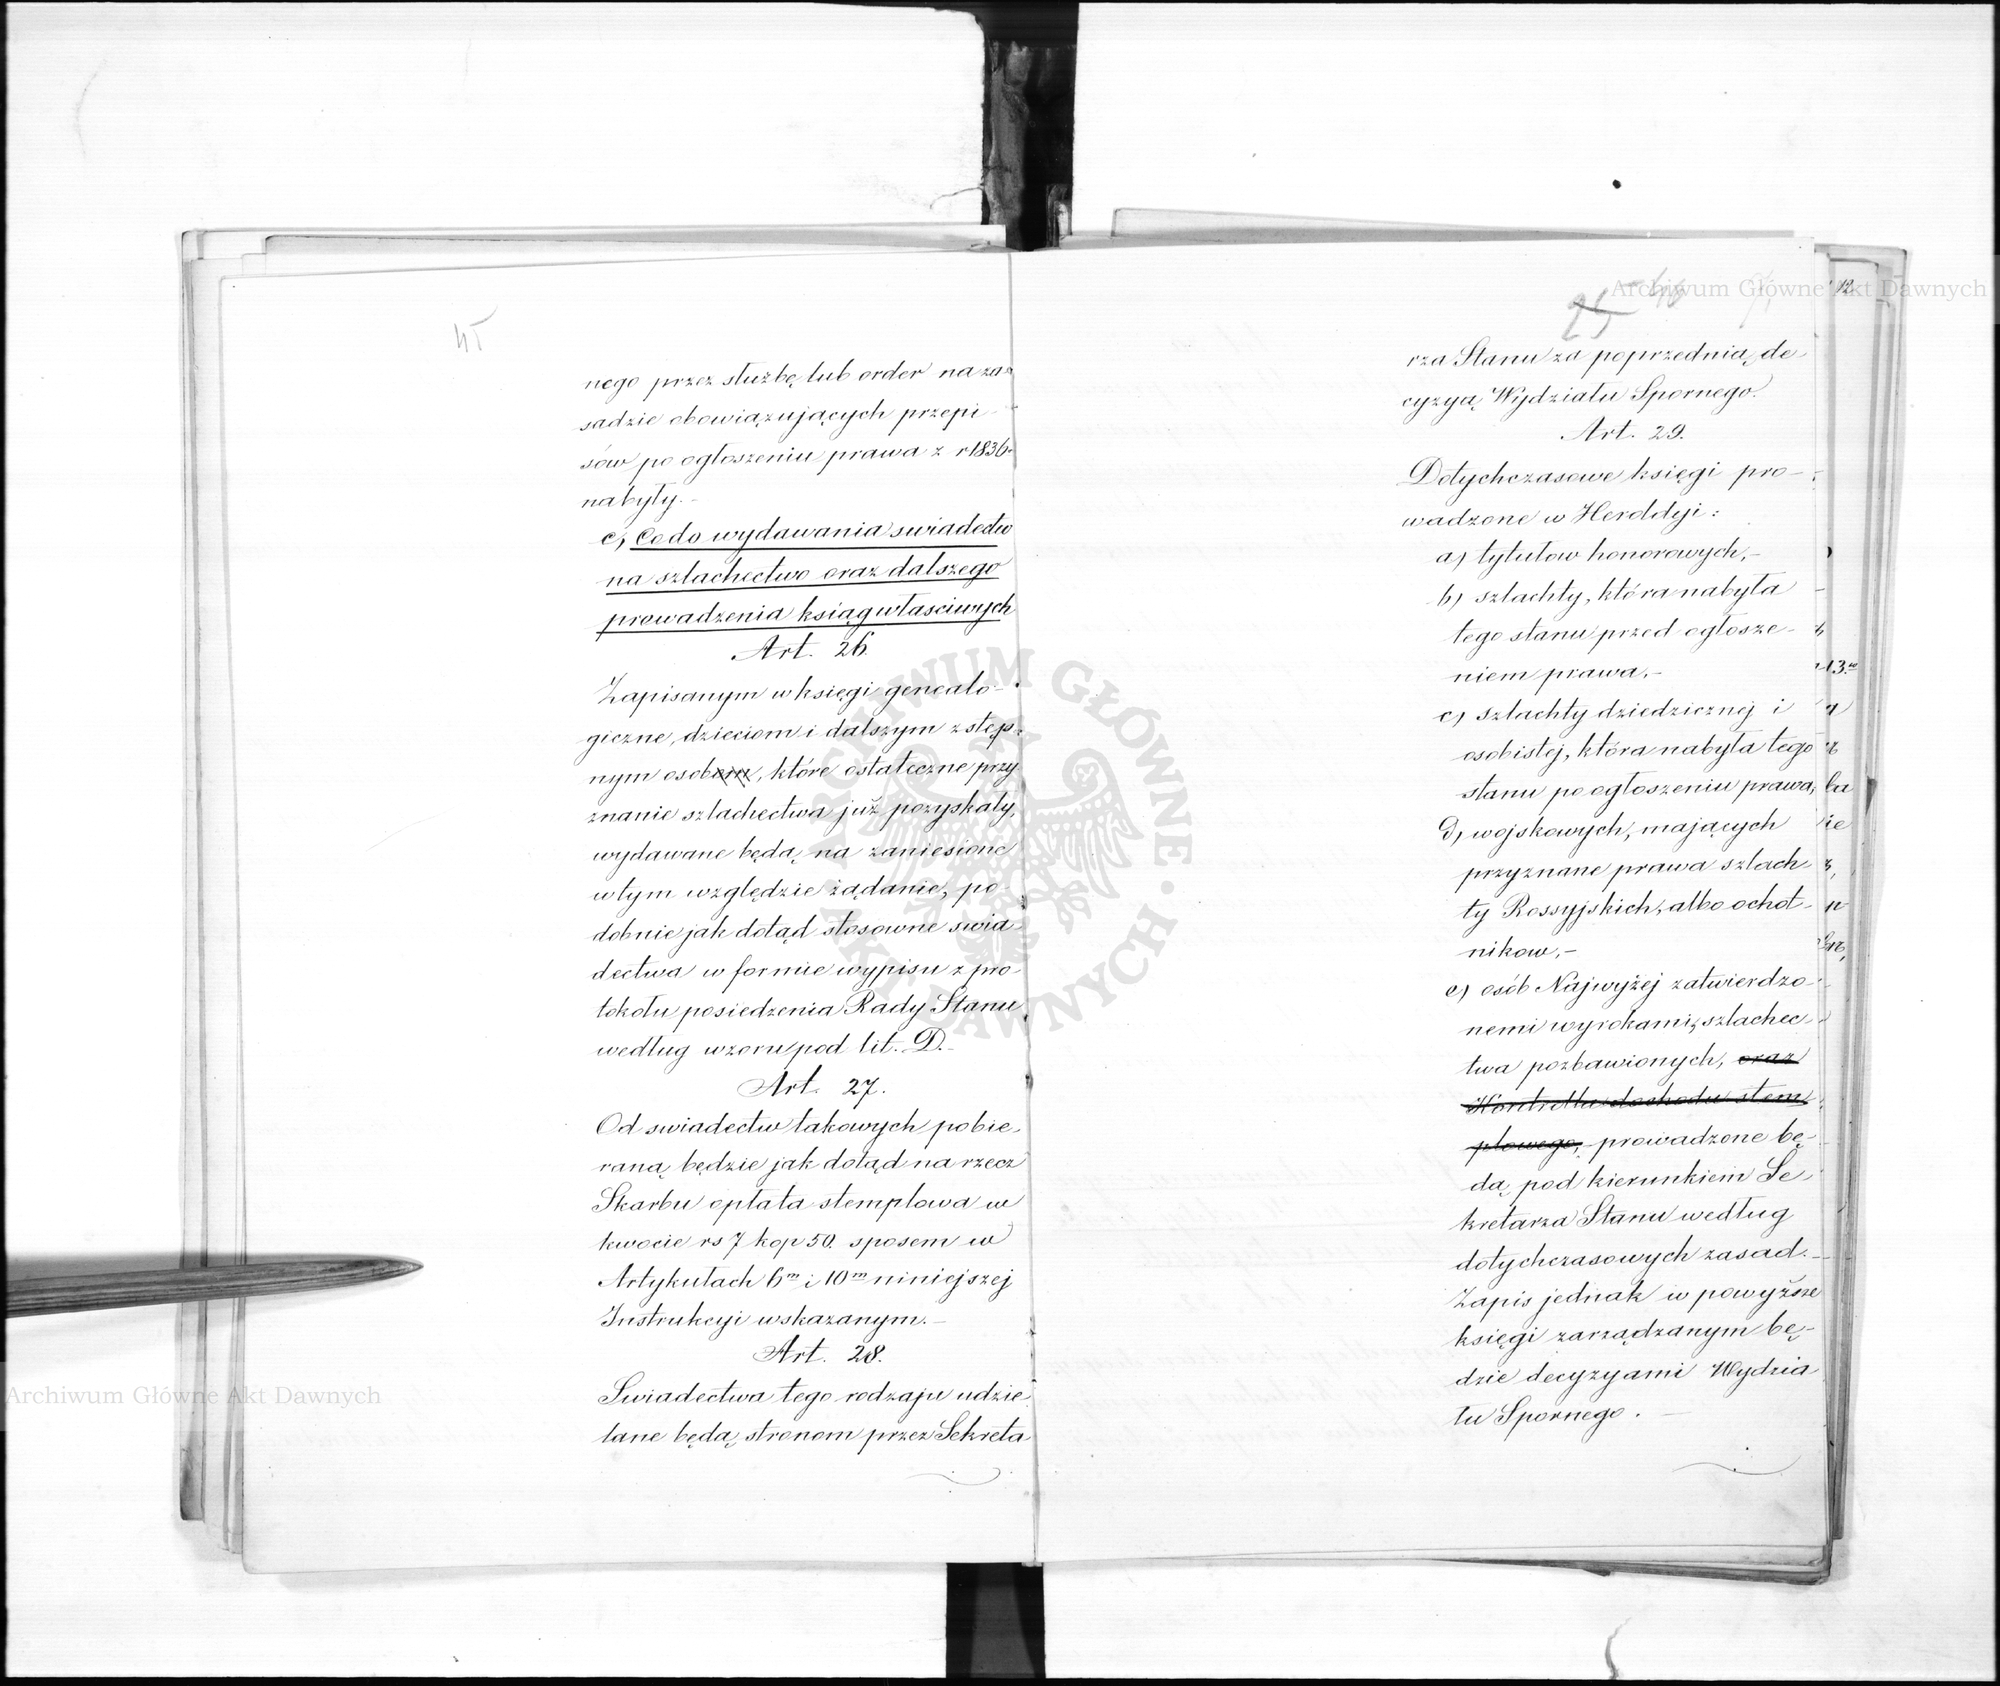 45
nego przez służbę lub order na za-
sadzie obowiązujących przepi-
sów po ogłoszeniu prawa z r 1836.
nabyły.-
c, Co do wydawania swiadectw
na szlachectwo oraz dalszego
prowadzenia ksiąg własciwych
Art. 26.
Zapisanym w księgi genealo-
giczne, dzieciom i dalszym zstęp-
nym osobom, które ostateczne przy
znanie szlachectwa już pozyskały,
wydawane będą, na zaniesione
w tym względzie żądanie, po-
dobnie jak dotąd stosowne swia-
dectwa w formie wypisu z pro-
tokołu posiedzenia Rady Stanu
według wzoru pod lit. D.-
Art. 27.
Od swiadectw takowych pobie-
raną będzie jak dotąd na rzecz
Skarbu opłata stemplowa w
kwocie rs 7 kop 50. sposem w
Artykułach 6m i 10m niniejszej
Instrukcyi wskazanym.-
Art. 28.
Swiadectwa tego rodzaju udzie-
lane będą, stronom przez Sekreta
25
rza Stanu za poprzednią de-
cyzyą Wydziału Spornego.
Art. 29.
Dotychczasowe księgi pro-
wadzone w Heroldyi:
a) tytułow honorowych,-
b) szlachty, która nabyła
tego stanu przed ogłosze-
niem prawa,-
c) szlachty dziedzicznej i
osobistej, która nabyła tego
stanu po ogłoszeniu prawa,
d) wojskowych, mających
przyznane prawa szlach-
ty Rossyjskich, albo ochot-
nikow,-
e) osób Najwyżej zatwierdzo-
nemi wyrokami, szlachec-
twa pozbawionych, oraz
Kontrolla dochodu stem
plowego, prowadzone bę-
dą pod kierunkiem Se-
kretarza Stanu według
dotychczasowych zasad.-
Zapis jednak w powyższe
księgi zarządzanym bę-
dzie decyzyami Wydzia
łu Spornego.
12
Archiwum Główne Akt Dawnych
Archiwum Główne Akt Dawnych
ARCHIWUM GŁÓWNE · AKT DAWNYCH ·